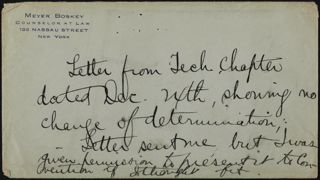 MEYER BOSKEY
COUNSELOR AT LAW
132 NASSAU STREET
NEW YORK
Letter from Tech Chapter
dated Dec. 14th, showing no
change of determination;
- Letter sent me but I was
given permission to present it to Con
vention if I thought fit.